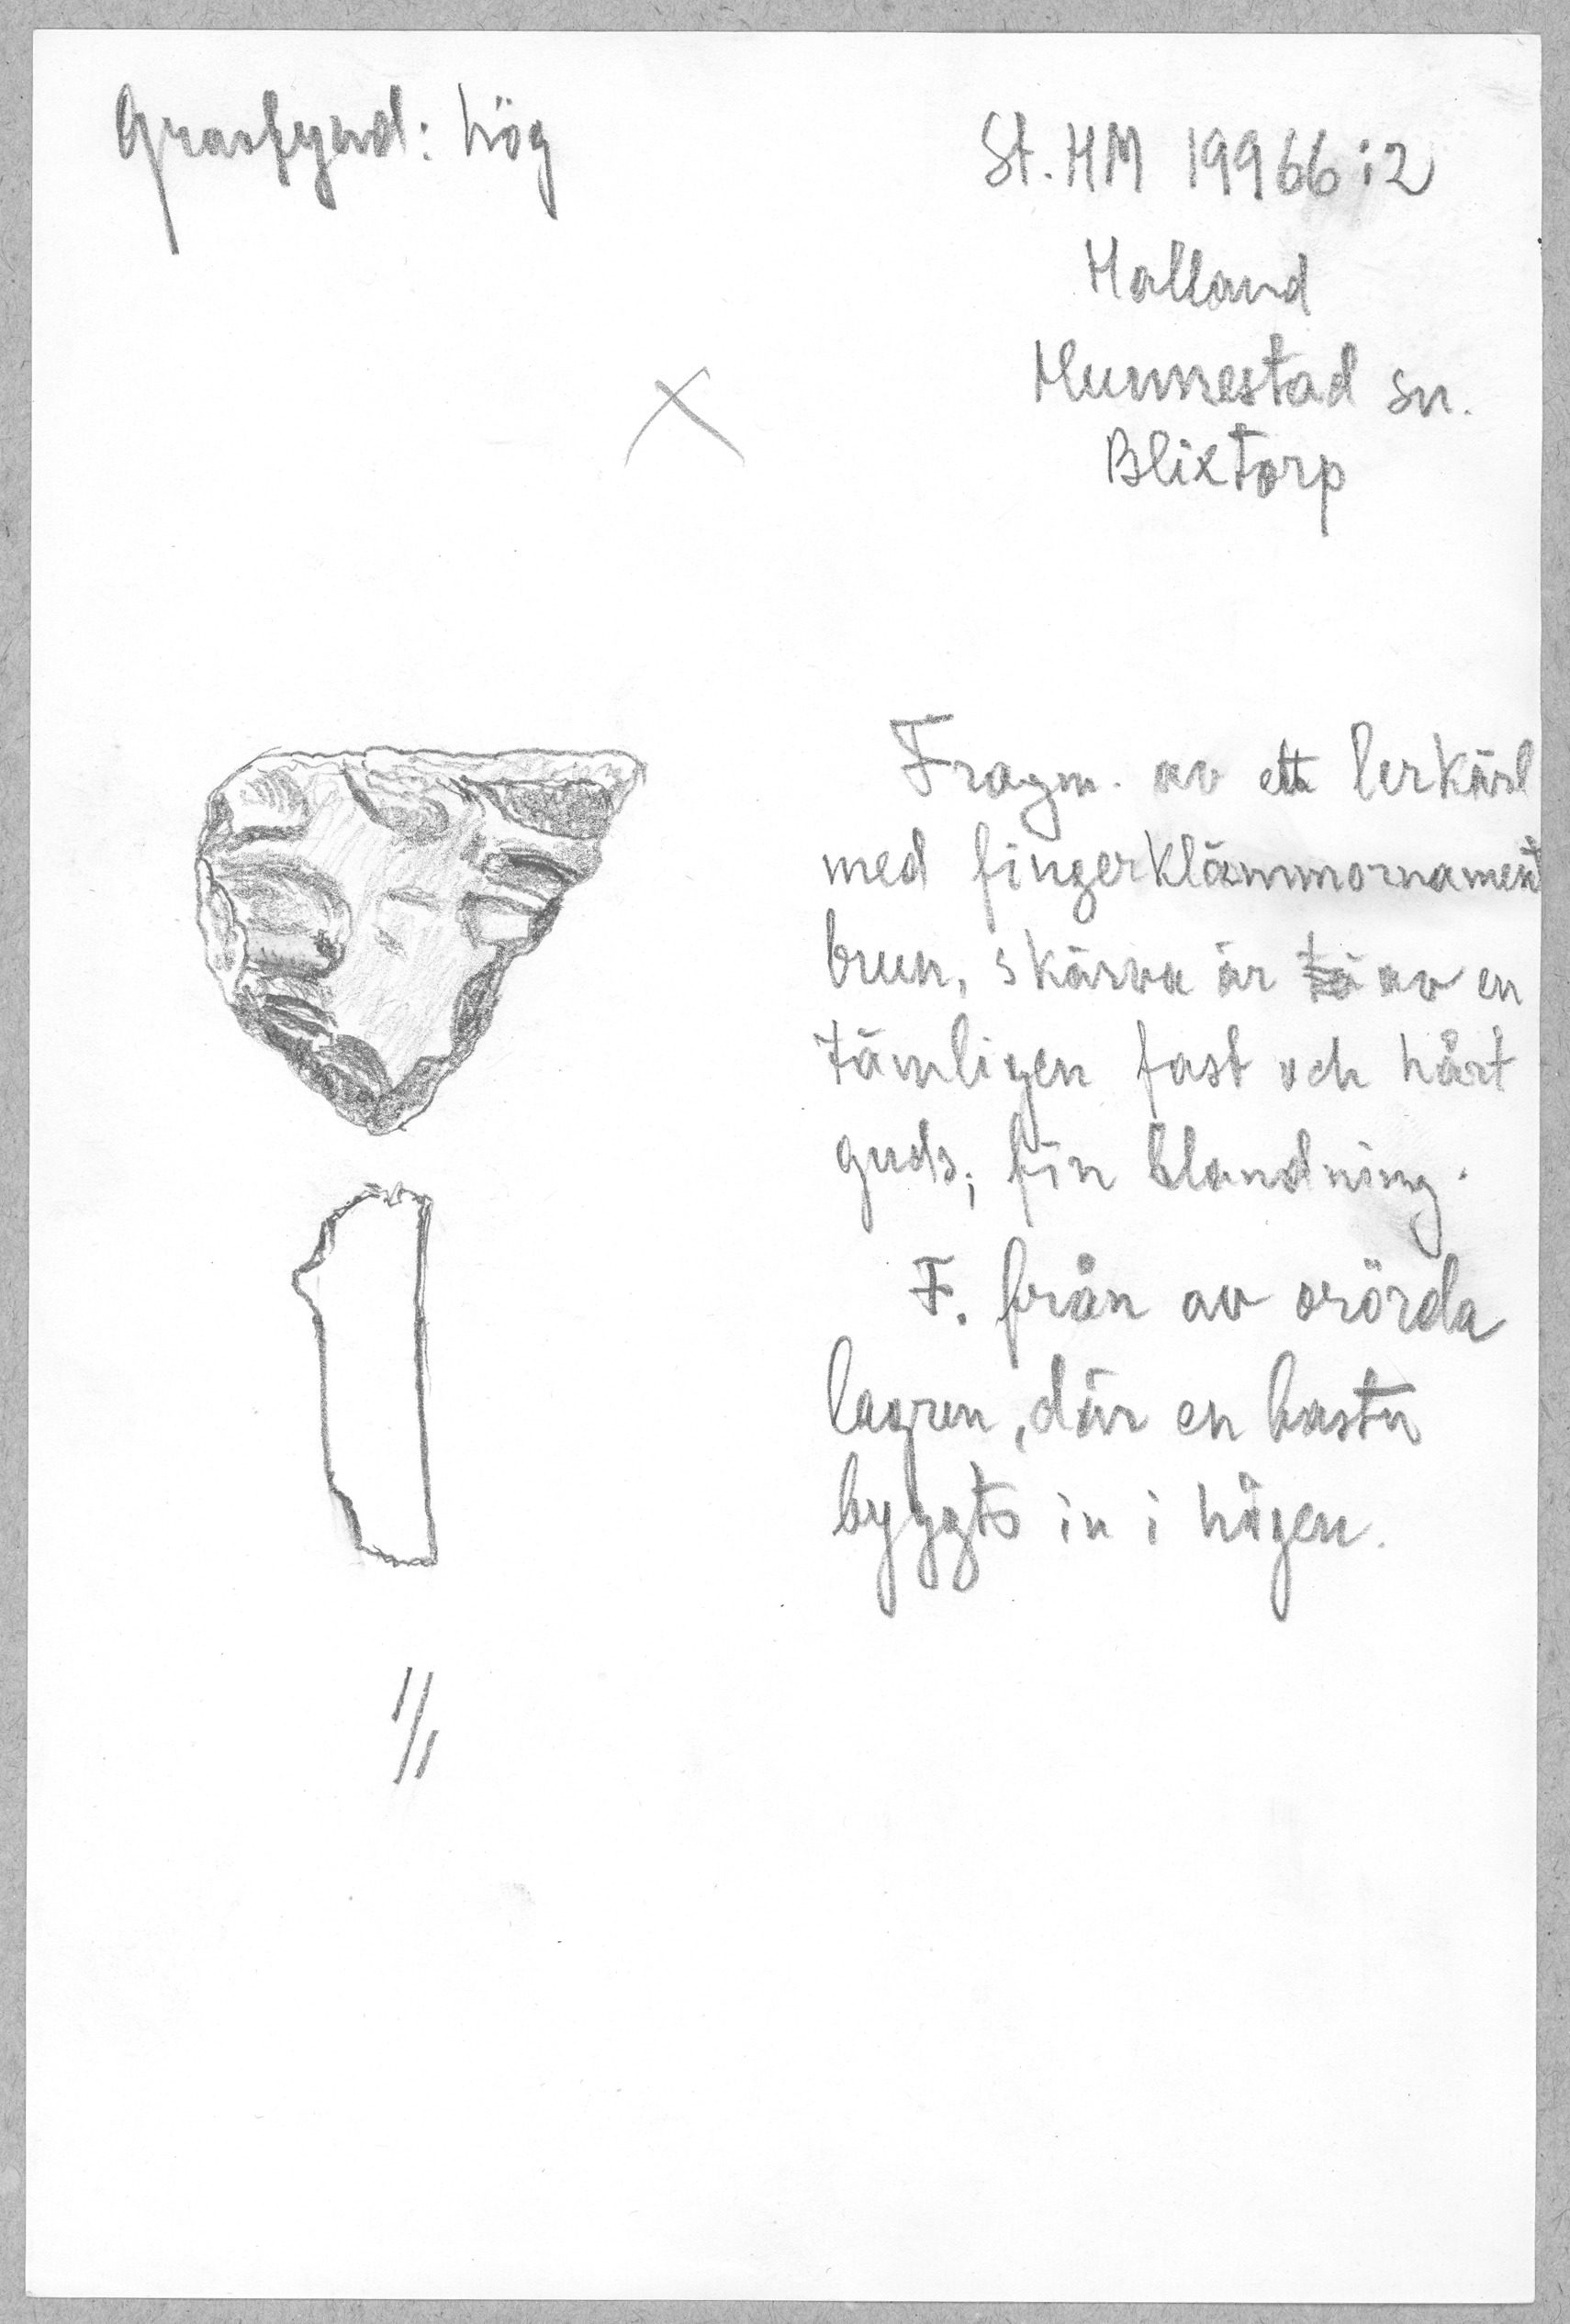 Gravfynd: hög
St. HM 19966:2
Halland
Hunnestad sn.
Blixtorp
Fragm. av ett lerkärl
med fingerklämmornament
brun, skärva är av en
tämligen fast och hårt
guds; fin blandning.
F. från av orörda
lagren, där en kastn
byggts in i högen.
1/1